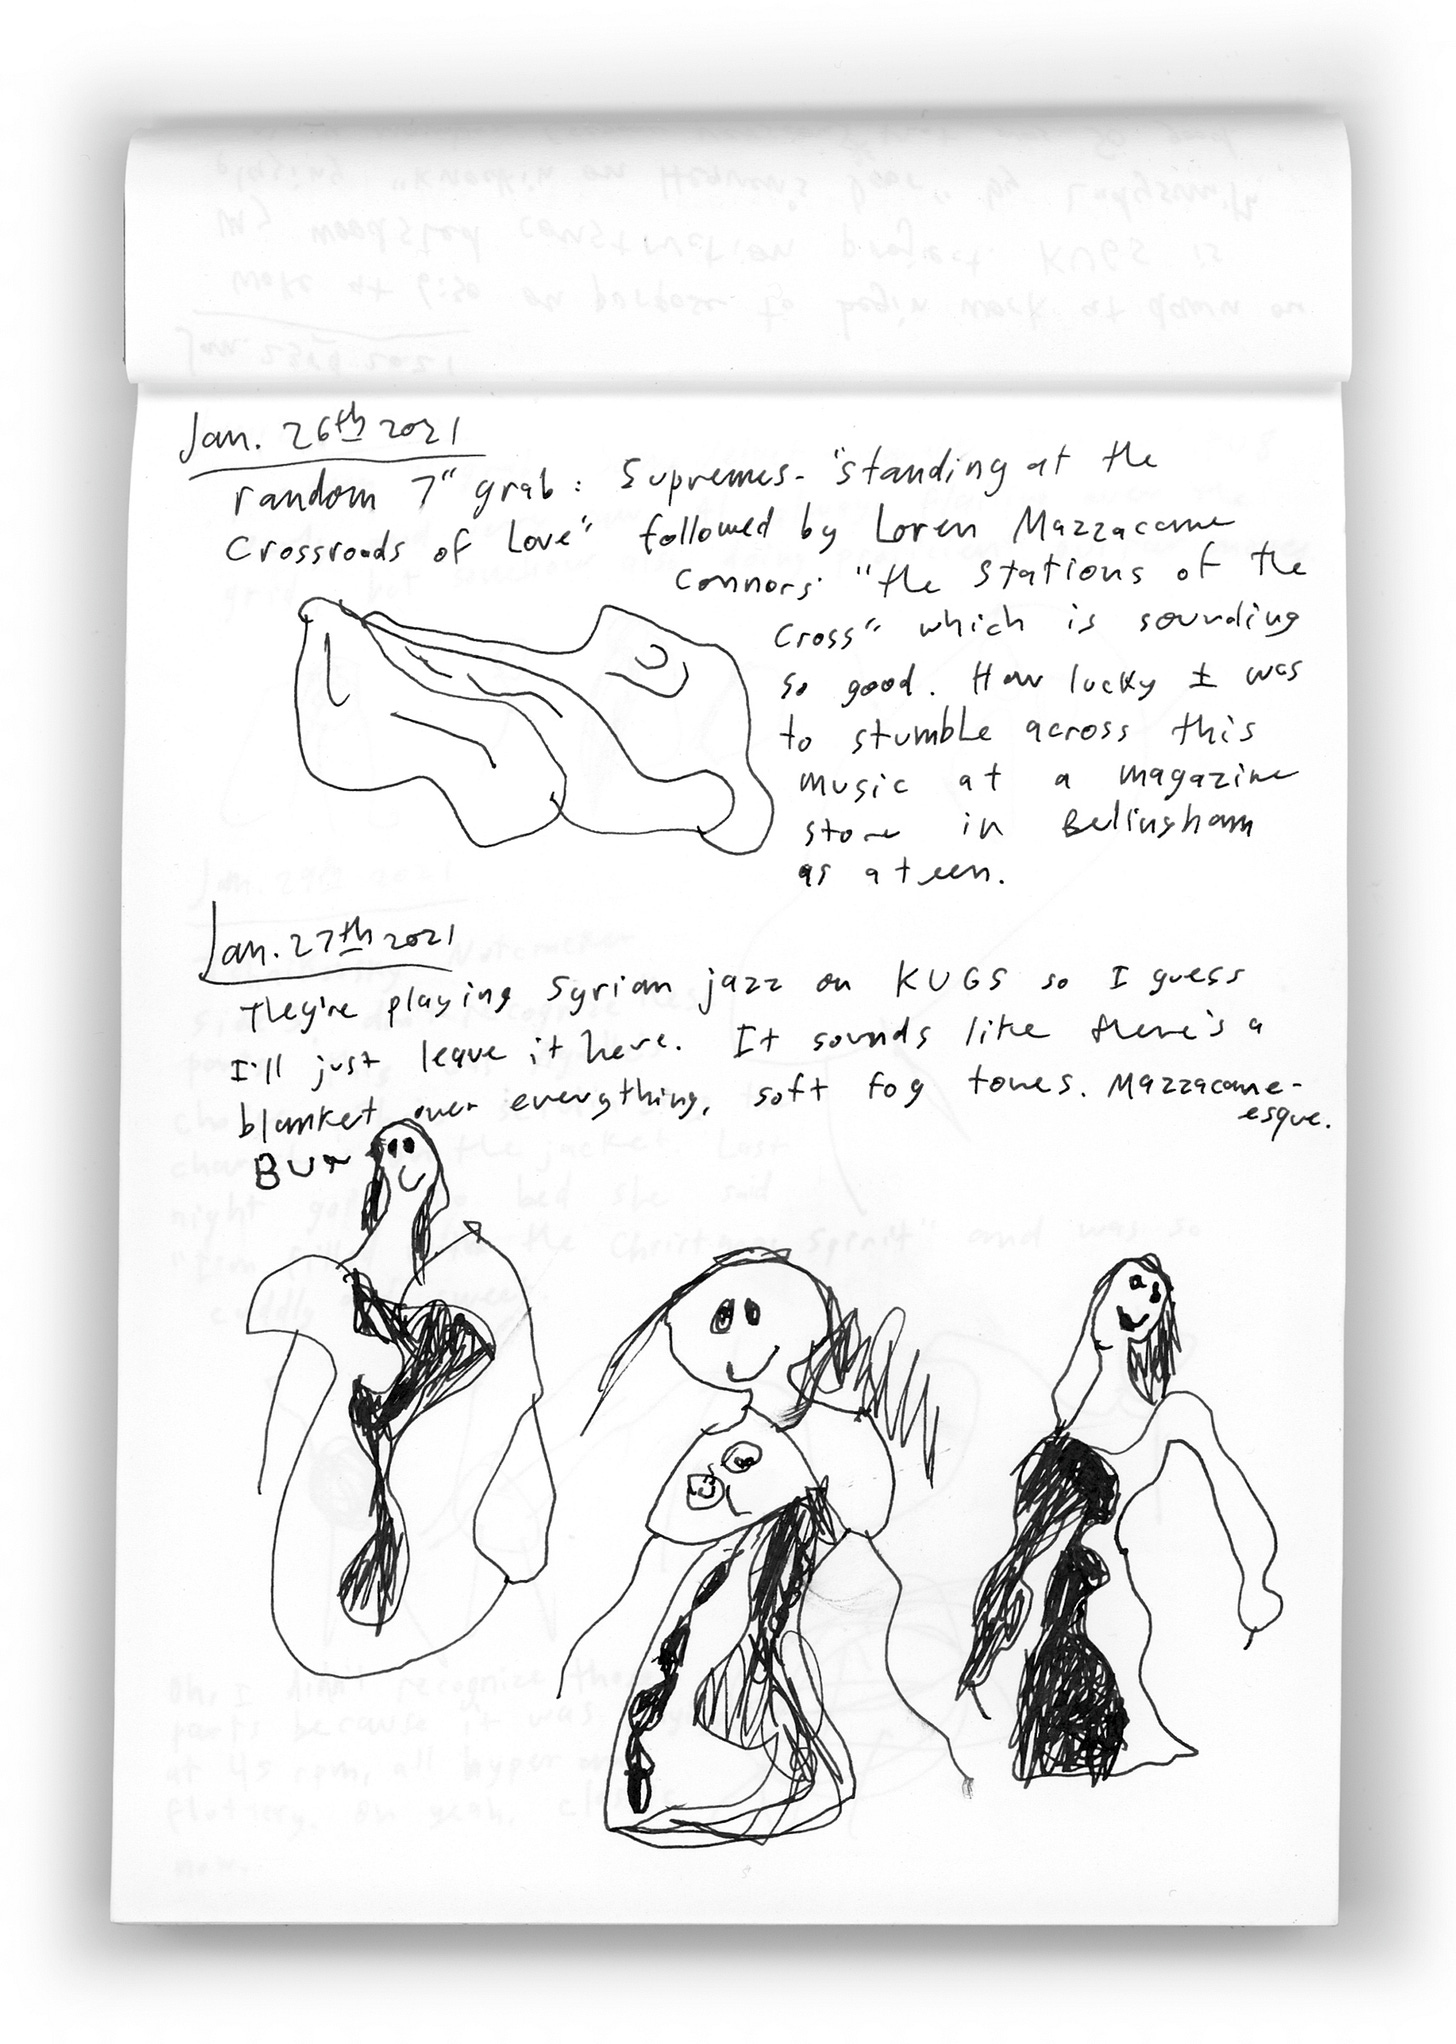 Jan. 26th 2021
random 7" grab: Supremes- "standing at the
Crossroads of Love" followed by Loren Mazzacane
Connors' "the Stations of the
Cross" which is sounding
so good. How lucky I was
to stumble across this
music at a magazine
store in Bellingham
as a teen.
Jan. 27th 2021
They're playing Syrian jazz on KUGS so I guess
I'll just leave it here. It sounds like there's a
blanket over everything, soft fog tones. Mazzacane-
esque.